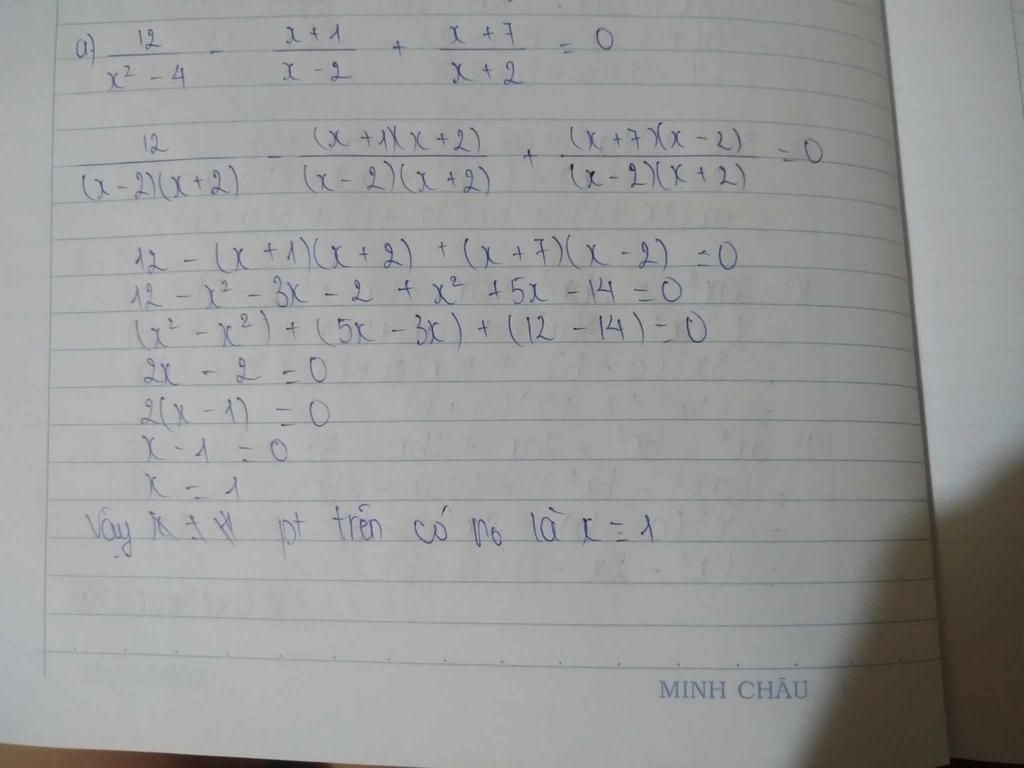 a) 12/(x² - 4) - (x + 1)/(x - 2) + (x + 7)/(x + 2) = 0
12/((x - 2)(x + 2)) - ((x + 1)(x + 2))/((x - 2)(x + 2)) + ((x + 7)(x - 2))/((x - 2)(x + 2)) = 0
12 - (x + 1)(x + 2) + (x + 7)(x - 2) = 0
12 - x² - 3x - 2 + x² + 5x - 14 = 0
(x² - x²) + (5x - 3x) + (12 - 14) = 0
2x - 2 = 0
2(x - 1) = 0
x - 1 = 0
x = 1
Vậy pt trên có no là x = 1
MINH CHÂU